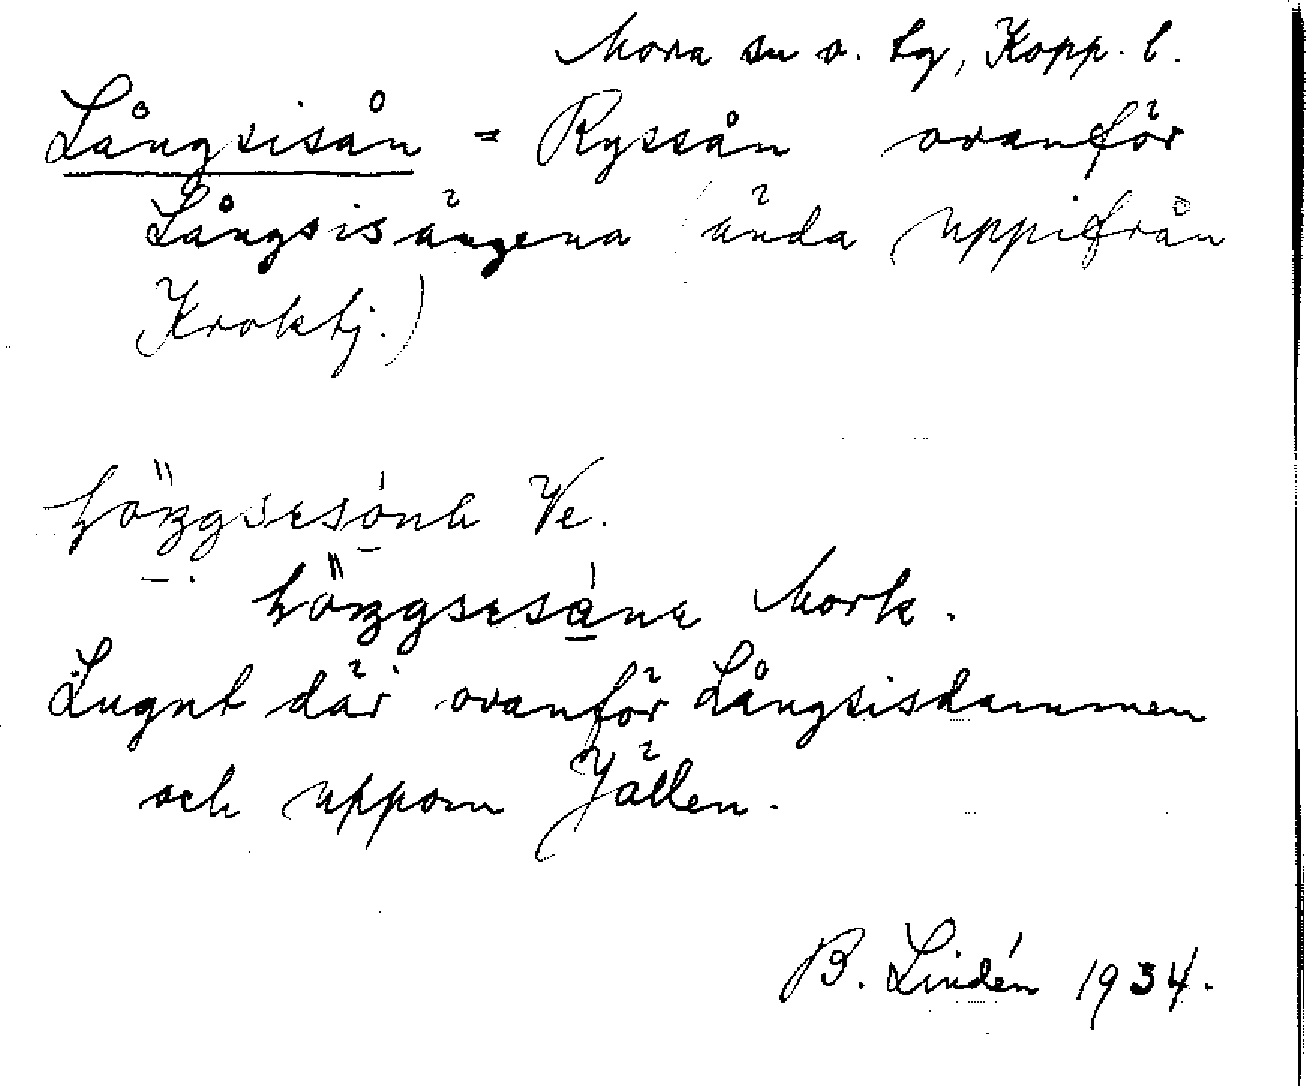 Mora sn o. tg, Kopp. l.
Långsisån = Ryssån ovanför
Långsisängena (ända uppifrån
Kroktj.)
Ve.
Mork.
Lugnt där ovanför Långsisdammen
och uppom Jällen.
B. Lindén 1934.